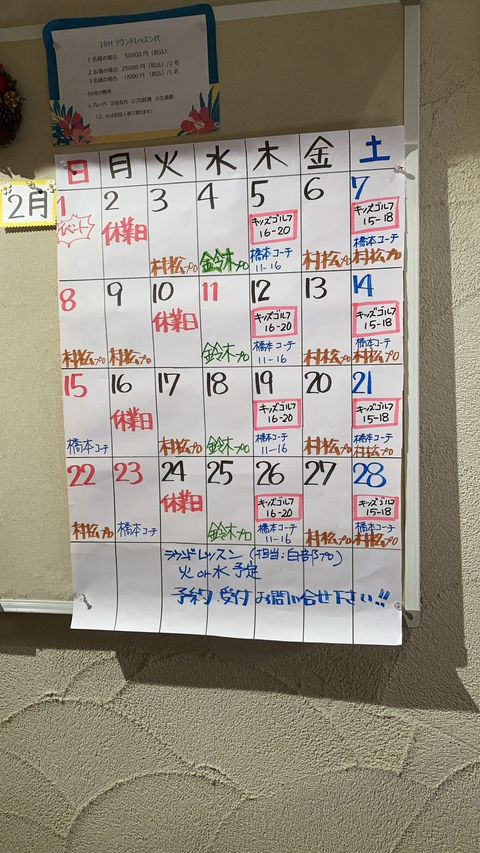 1BH ラウンドレッスン代
1名様の場合 50000円(税込)
2名様の場合 25000円(税込)/1名
3名様の場合 17000円(税込)/1名
2月
日 月 火 水 木 金 土
1 2 3 4 5 6 7
イベント 休業日 キッズゴルフ キッズゴルフ
16-20 15-18
村松プロ 鈴木プロ 橋本コーチ 村松プロ 橋本コーチ
11-16 村松プロ
8 9 10 11 12 13 14
休業日 キッズゴルフ キッズゴルフ
16-20 15-18
村松プロ 村松プロ 鈴木プロ 橋本コーチ 村松プロ 橋本コーチ
11-16 村松プロ
15 16 17 18 19 20 21
休業日 キッズゴルフ キッズゴルフ
16-20 15-18
橋本コーチ 村松プロ 鈴木プロ 橋本コーチ 村松プロ 橋本コーチ
11-16 村松プロ
22 23 24 25 26 27 28
休業日 キッズゴルフ キッズゴルフ
16-20 15-18
村松プロ 橋本コーチ 鈴木プロ 橋本コーチ 村松プロ 橋本コーチ
11-16 村松プロ
ラウンドレッスン (担当:白部プロ)
火or水 予定
予約受付 お問い合せ下さい!!